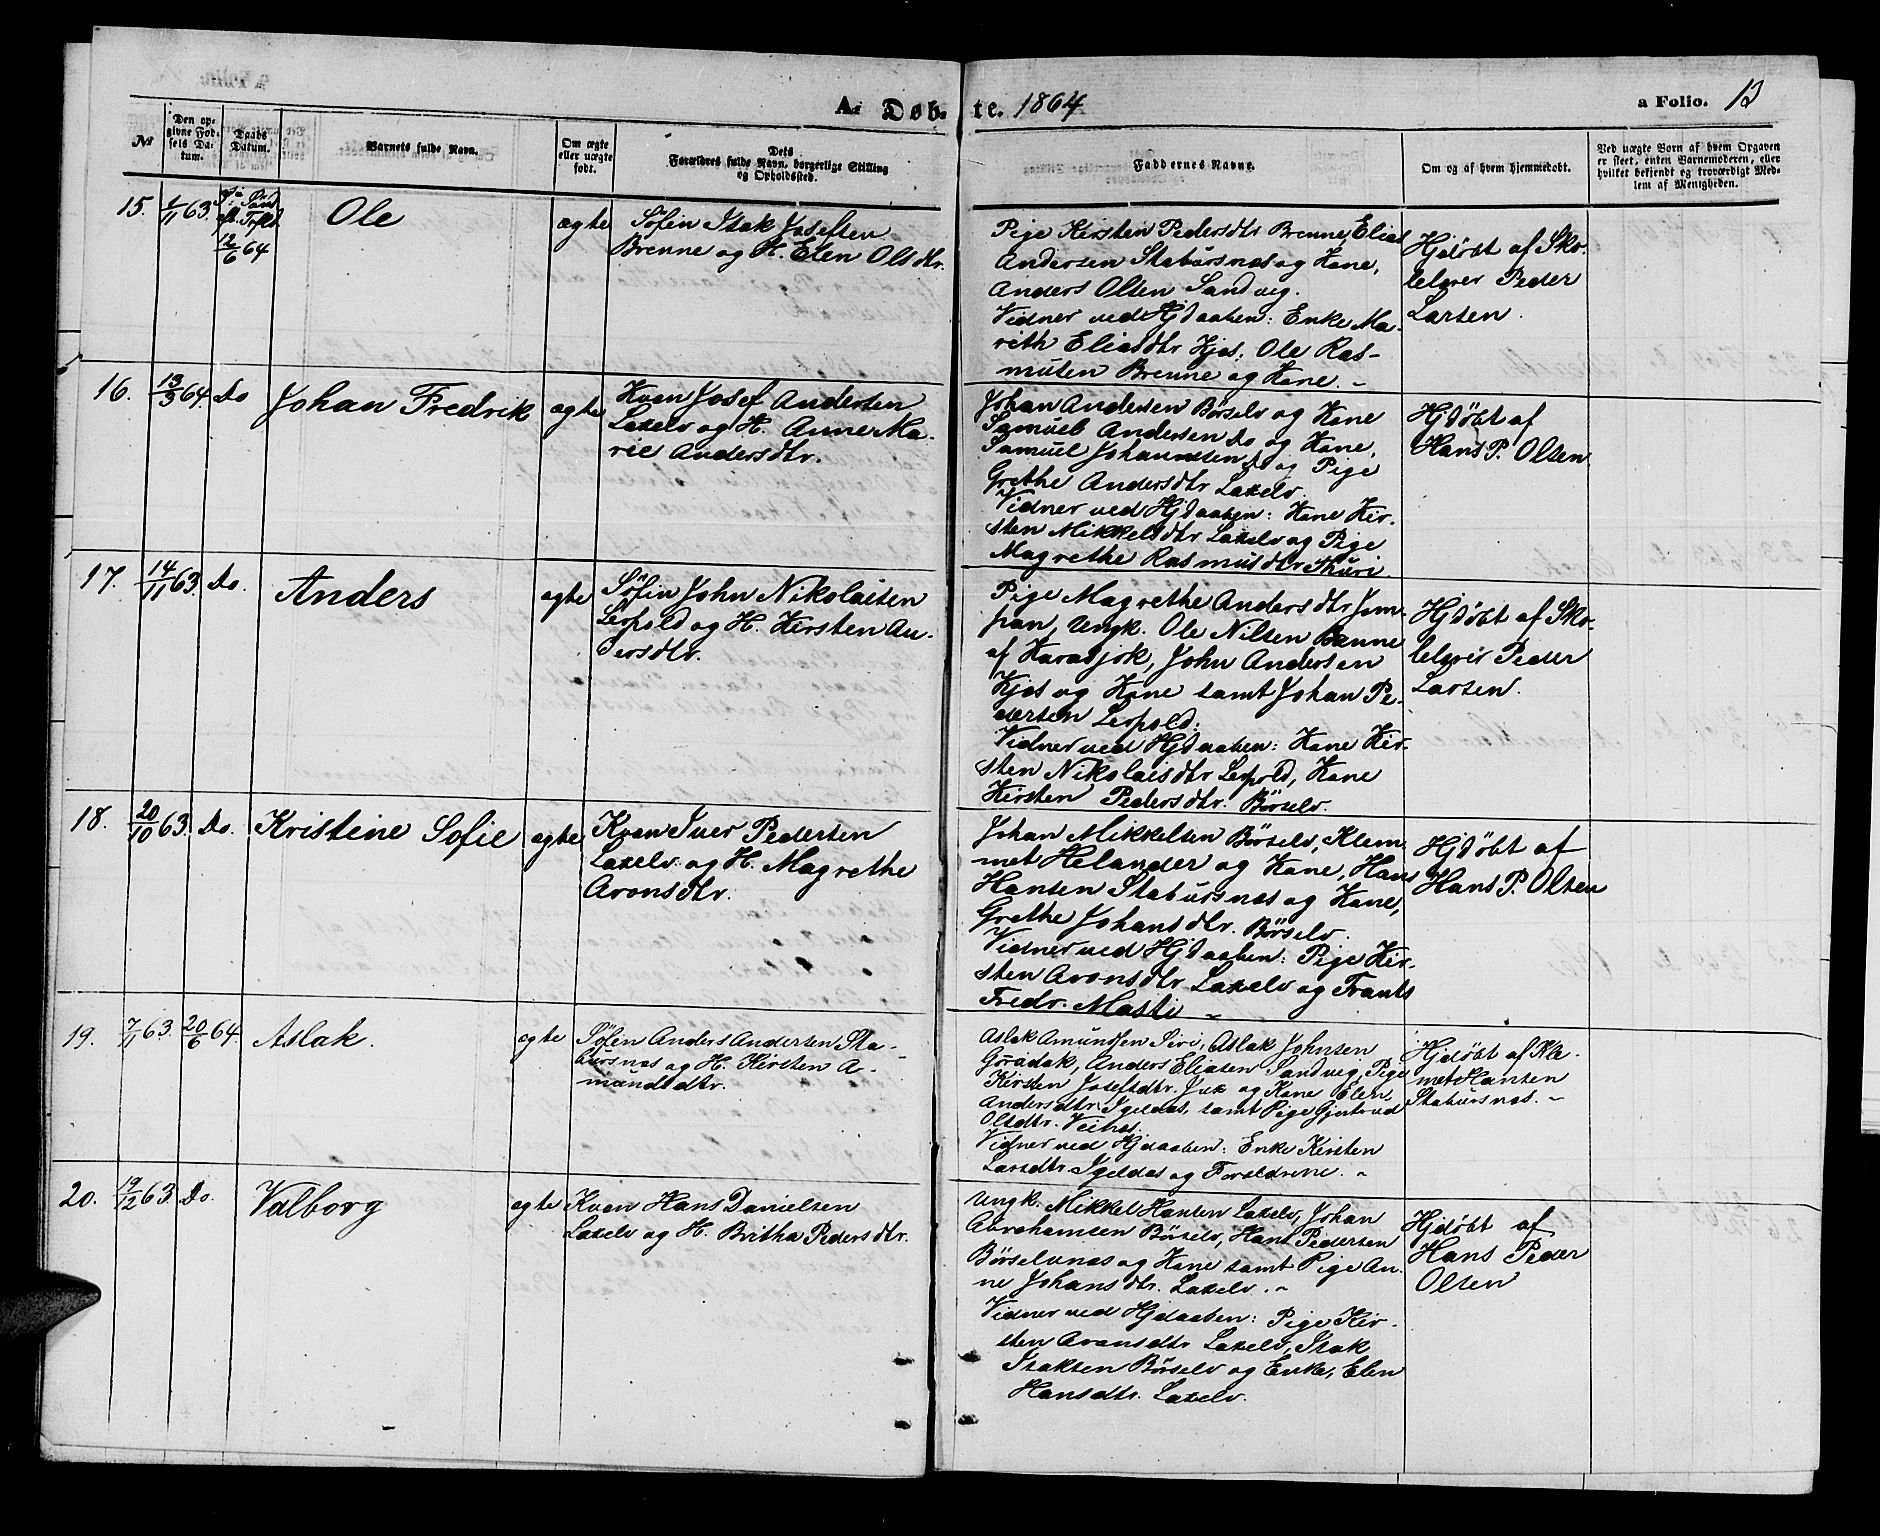 A. Døb-te. 1864
a Folio. 13
№
Den opgivne Fødsels Datum.
Daabs Datum.
Barnets fulde Navn.
Om ægte eller uægte født.
Dets Forældres fulde Navn, borgerlige Stilling og Opholdssted.
Faddernes Navne.
Om og af hvem hjemmedøbt.
Ved uægte Børn af hvem Opgaven er skeet, enten Barnemoderen, eller hvilket bekjendt og troværdigt Medlem af Menigheden.
15. 1/11 63.
12/6 64
Ole
ægte
Søfin Isak Josefsen
Brenne og H. Elen Olsdtr.
Pige Kirsten Pedersdtr Brenne, Elias
Andersen Stabursnæs og Kone,
Anders Olsen Sandvig.
Vidner ved Hjdaaben: Enke Ma-
reth Eliasdtr Kjæs, Ole Ras-
musen Brenne og Kone. -
Hjdøbt af Sko-
lelærer Peder
Larsen.
16. 13/3 64. Do
Johan Fredrik
ægte
Kvæn Josef Andersen
Laxelv og H. Anne Ma-
rie Andersdtr.
Johan Andersen Børselv og Kone
Samuel Andersen Do og Kone,
Samuel Johannesen Do og Pige
Grethe Andersdtr Laxelv.
Vidner ved Hjdaaben: Kone Kir-
sten Mikkelsdtr Laxelv og Pige
Magrethe Rasmusdtr Thuri.
Hjdøbt af
Hans P. Olsen.
17. 14/11 63. Do.
Anders
ægte
Søfin John Nikolaisen
Leipold og H. Kirsten An-
dersdtr.
Pige Magrethe Andersdtr Jom-
pan, Ungk. Ole Nilsen Banne
af Karasjok, John Andersen
Kjæs og Kone samt Johan Pe-
dersen Leipold.
Vidner ved Hjdaaben: Kone Kir-
sten Nikolaisdtr Leipold, Kone
Kirsten Pedersdtr. Børselv.
Hjdøbt af Sko-
lelærer Peder
Larsen.
18. 20/10 63. Do.
Kristine Sofie
ægte
Kvæn Iver Pedersen
Laxelv og H. Magrethe
Aronsdtr.
Johan Mikkelsen Børselv, Klem-
met Helander og Kone, Hans
Hansen Stabursnæs og Kone,
Grethe Johansdtr. Børselv.
Vidner ved Hjdaaben: Pige Kir-
sten Aronsdtr Laxelv og Frants
Fredr. Masti -
Hjdøbt af
Hans P. Olsen
19. 7/11 63. 20/6 64.
Aslak.
ægte
Søfin Anders Andersen Sta-
bursnæs og H. Kirsten A-
mundsdtr.
Aslak Amundsen Siri, Aslak Johnsen
Goradak, Anders Eliasen Sandvig, Pige
Kirsten Josefsdtr. Jux og Kone Elen
Andersdtr. Igeldas, samt Pige Gjertrud
Olsdtr. Veinæs.
Vidner ved Hjdaaben: Enke Kirsten
Larsdtr Igeldas og Forældrene. -
Hjdøbt af Kle-
met Hansen
Stabursnæs. -
20. 19/12 63 Do.
Valborg
ægte
Kvæn Hans Danielsen
Laxelv og H. Britha Pedersdtr.
Ungk. Mikkel Hansen Laxelv, Johan
Abrahamsen Børselv, Hans Pedersen
Børselvnæs og Kone samt Pige An-
ne Johansdtr. Laxelv. -
Vidner ved Hjdaaben: Pige Kir-
sten Aronsdtr Laxelv, Isak
Isaksen Børselv og Enke, Elen
Hansdtr. Laxelv.
Hjdøbt af
Hans Peder
Olsen